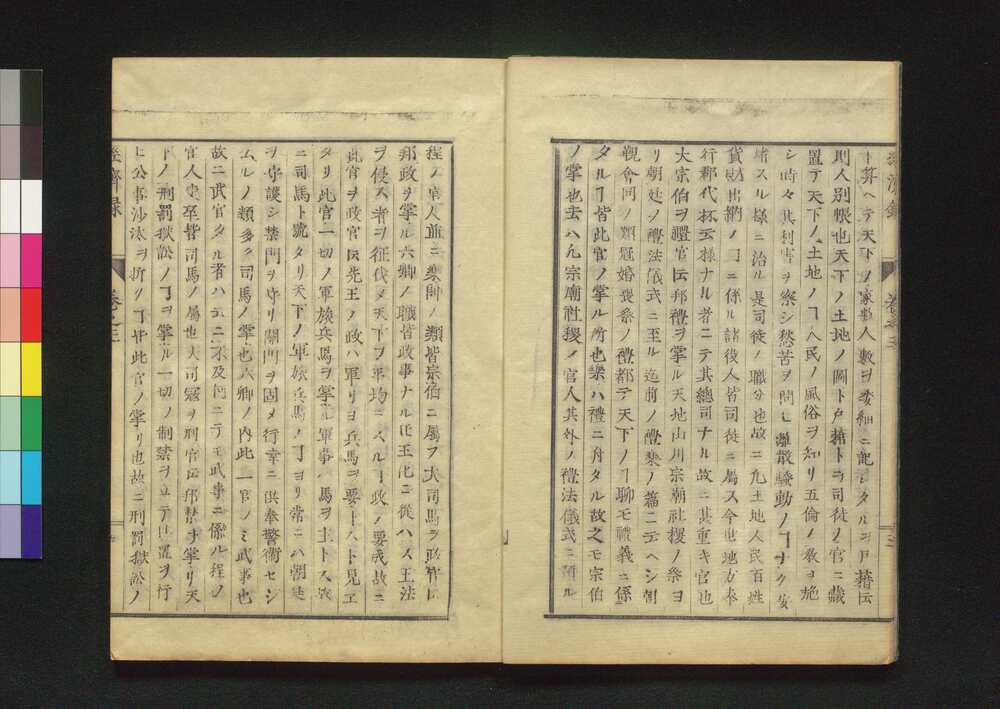 ト算ヘテ天下ノ家數人數ヲ委細ニ記シタルヲ戸籍云
則人別帳也天下ノ土地ノ圖ト戸籍トヲ司徒ノ官ニ藏
置テ天下ノ土地ノヿ人民ノ風俗ヲ知リ五倫ノ教ヲ施
シ時々其利害ヲ察シ愁苦ヲ問ヒ離散騷動ノヿナク安
堵スル樣ニ治ル是司徒ノ職分也故ニ凡土地人民百姓
貨財出納ノヿニ係ル諸役人皆司徒ニ屬ス今世地方奉
行郡代抔云樣ナル者ニテ其總司ナル故ニ甚重キ官也
大宗伯ヲ禮官云邦禮ヲ掌ル天地山川宗廟社稷ノ祭ヨ
リ朝廷ノ禮法儀式ニ至ル迄前ノ禮樂ノ篇ニ云ヘシ朝
覲會同ノ類冠婚喪祭ノ禮都テ天下ノヿ聊モ禮義ニ係
タルヿ皆此官ノ掌ル所也樂ハ禮ニ附タル故之モ宗伯
ノ掌也去ハ凡宗廟社稷ノ官人其外ノ禮法儀式ニ預ル
經濟録
卷之三
程ノ官人並ニ樂師ノ類皆宗伯ニ屬ス大司馬ヲ政官
邦政ヲ掌ル六卿ノ職皆政事ナルモ王化ニ從ハス王法
ヲ侵ス者ヲ征伐メ天下ヲ平均ニスルヿ政ノ要戒故ニ
此官ヲ政官云先王ノ政ハ軍リヨ兵馬ヲ要トスト見エ
タリ此官一切ノ軍旅兵馬ヲ掌ル軍事ハ馬ヲ主トス故
ニ司馬ト號タリ天下ノ軍旅兵馬ノヿヨリ常ニハ朝廷
ヲ守護シ禁門ヲ守リ關門ヲ固メ行幸ニ供奉警衞セシ
ムルノ類多ク司馬ノ掌也六卿ノ内此一官ノミ武事也
故ニ武官タル者ハ云ニ不及何ニテモ武事ニ係ル程ノ
官人史卒皆司馬ノ屬也大司寇ヲ刑官云邦禁ヲ掌リ天
下ノ刑罰獄訟ノヿヲ掌ル一切ノ制禁ヲ立テ仕置ヲ行
ヒ公事沙汰ヲ折リヿ皆此官ノ掌リ也故ニ刑罰獄訟ノ
經濟録
卷之三